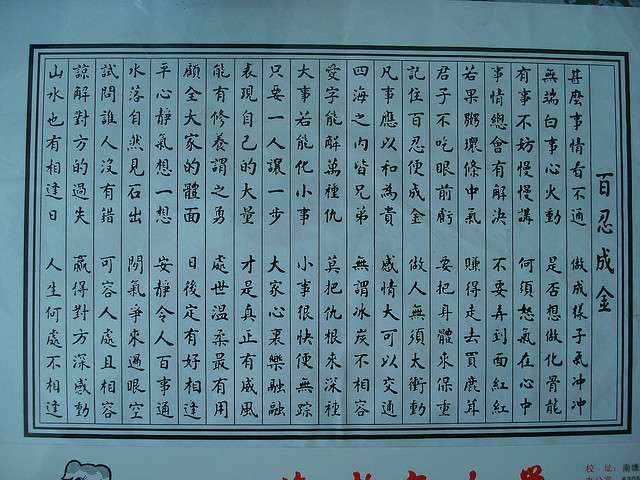 百忍成金
甚麼事情看不通 做成樣子氣冲冲
無端白事心火動 是否想做化骨龍
有事不妨慢慢講 何須怒氣在心中
事情總會有解決 不要弄到面紅紅
若果壞條中氣 賺得走去買鹿茸
君子不吃眼前虧 要把身體來保重
記住百忍便成金 做人無須太衝動
凡事應以和為貴 感情大可以交通
四海之內皆兄弟 無謂冰炭不相容
愛字能解萬種仇 莫把仇根來深種
大事若能化小事 小事很快便無踪
只要一人讓一步 大家心裏樂融融
表現自己的大量 才是真正有威風
能有修養謂之勇 處世温柔最有用
顧全大家的體面 日後定有好相逢
平心靜氣想一想 安靜令人百事通
水落自然見石出 閒氣爭來過眼空
試問誰人沒有錯 可容人處且相容
諒解對方的過失 贏得對方深感動
山水也有相逢日 人生何處不相逢
校 址：南塘